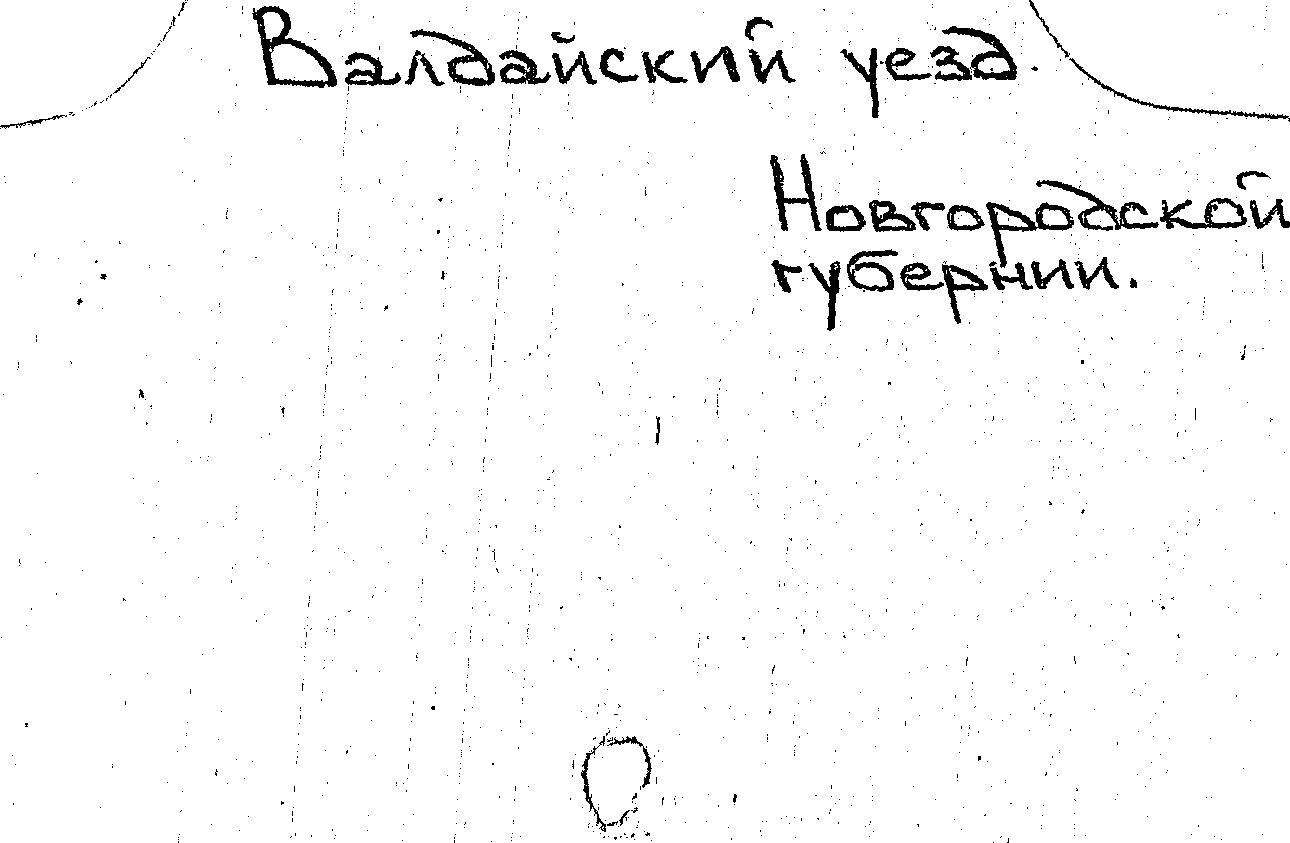 Валдайский уезд
Новгородской
губернии.